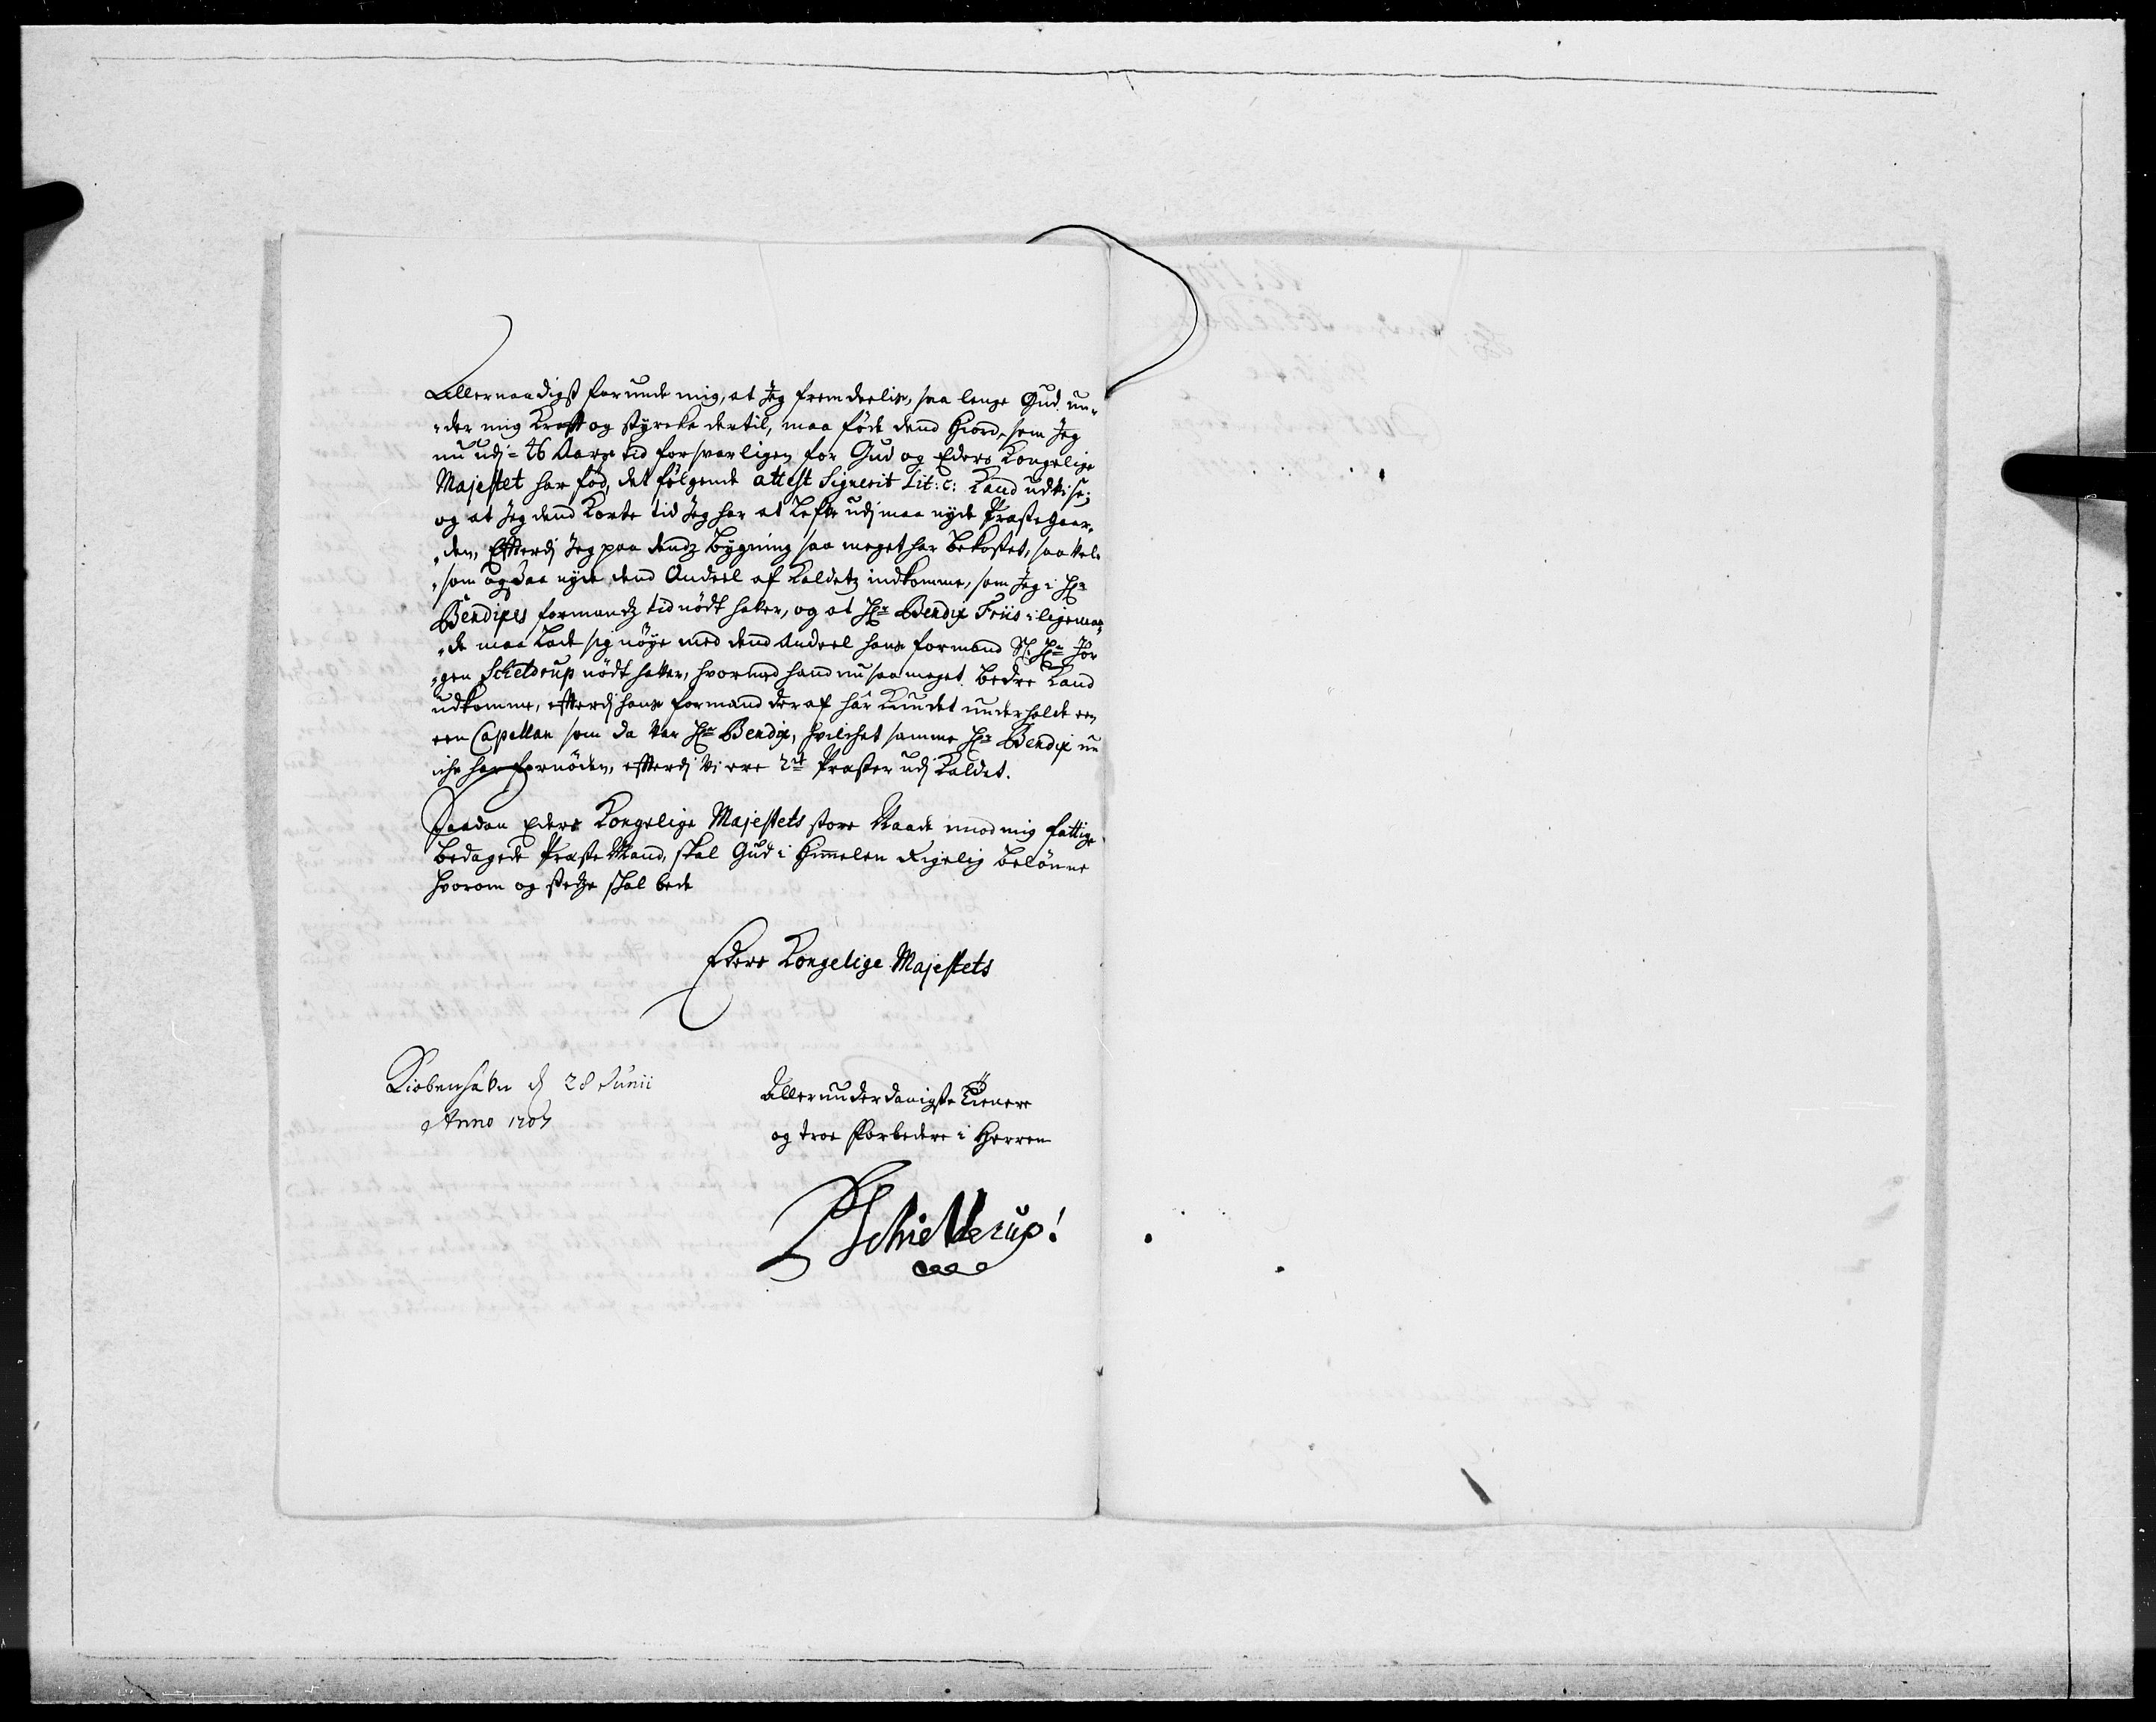 Allernaadigst forunde mig, at Jeg fremdeelis, saa lenge Gud un-
-der mig Krafft og styrcke dertil, maa føde dend Hiord, som Jeg
nu udj = 46 Aars tid forsvarligen for Gud og Eders Kongelige
Majestet har fød, det følgende attest Signerit Lit: C: Kand udvise;
og at Jeg dend Korte tid Jeg har at Lefve udj maa nyde Præstegaar-
-den, Efterdj Jeg paa dendz bygning saa meget har bekostet, saa vel
som ogsaa nyde dend Andeel af Kaldetz indkomme, som Jeg i Hr
Bendixes formandz tid nødt haver, og at Hr Bendix Friis i ligemaa-
-de maa Lade sig nøye med dend Andeel hans formand Sl: Hr Jør
-gen Scheldrup nødt haver, hvormed hand nu saa meget bedre Kand
udkomme, efterdj hans formand deraf har Kundet underholde en
een Capellan som da var Hr Bendix, hvilchet samme Hr Bendix nu
iche har fornøden, efterdj vi ere 2de Præster udj Kaldet.
Saadan Eders Kongelige Majestets store Naade imod mig fattige
bedagede Præste Mand, skal Gud i Himmelen Rigelig belønne
hvorom og stedze skal bede
Eders Kongelige Majestets
Kiøbenhavn d 28 Junii
Anno 1707
Allerunderdanigste Tienere
og troe Forbedere i Herren
Schielderup!